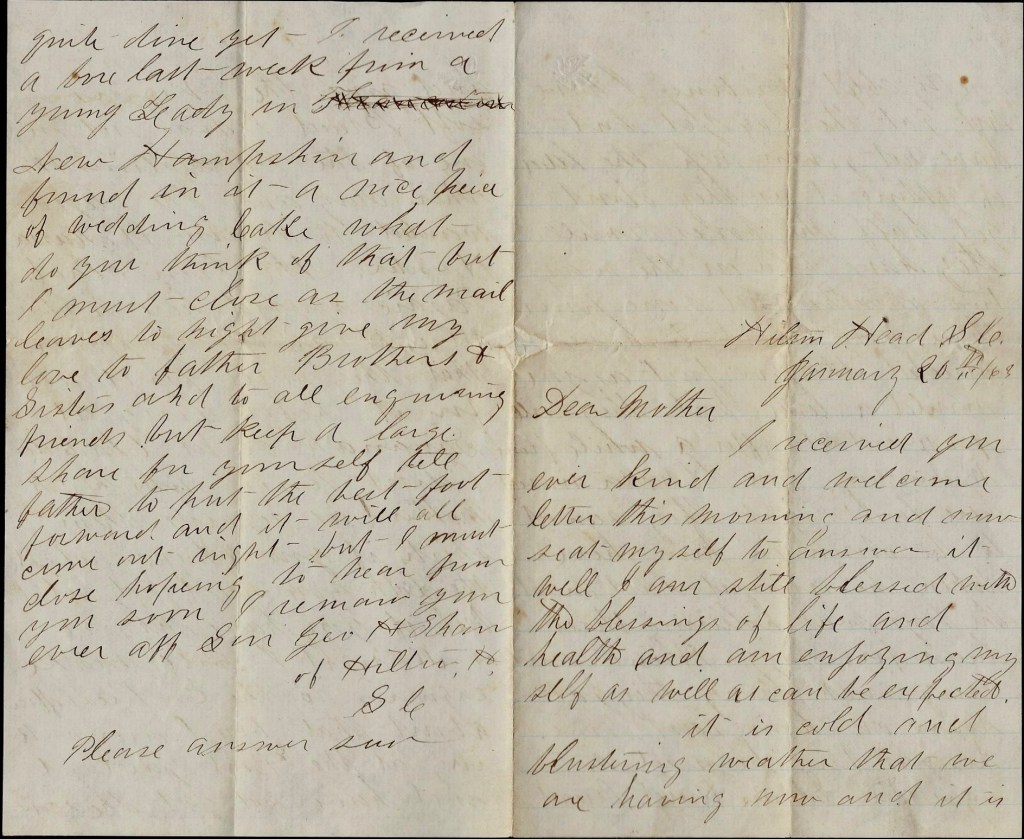 Hilton Head S.C.
January 20th/63
Dear Mother
I received your
ever kind and welcome
letter this morning and now
seat myself to answer it
well I am still blessed with
the blessings of life and
health and am enjoying my
self as well as can be expected.
it is cold and
blustering weather that we
are having now and it is
quite dive yet - I received
a box last week from a
young Lady in
New Hampshire and
found in it a nice peice
of wedding Cake what
do you think of that but
I must close as the mail
leaves to night give my
love to father Brothers &
Sisters and to all enquiring
friends but keep a large
share for yourself tell
father to put the best foot
forward and it will all
come out right but I must
close hopeing to hear from
you soon I remain your
ever aff Son Geo H Shaw
of Hilton H.
S C
Please answer soon